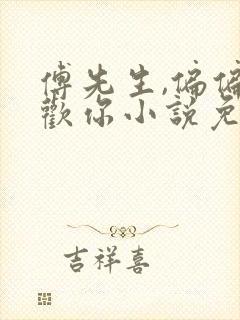 傅先生,偏偏
歡你小說免
吉祥喜